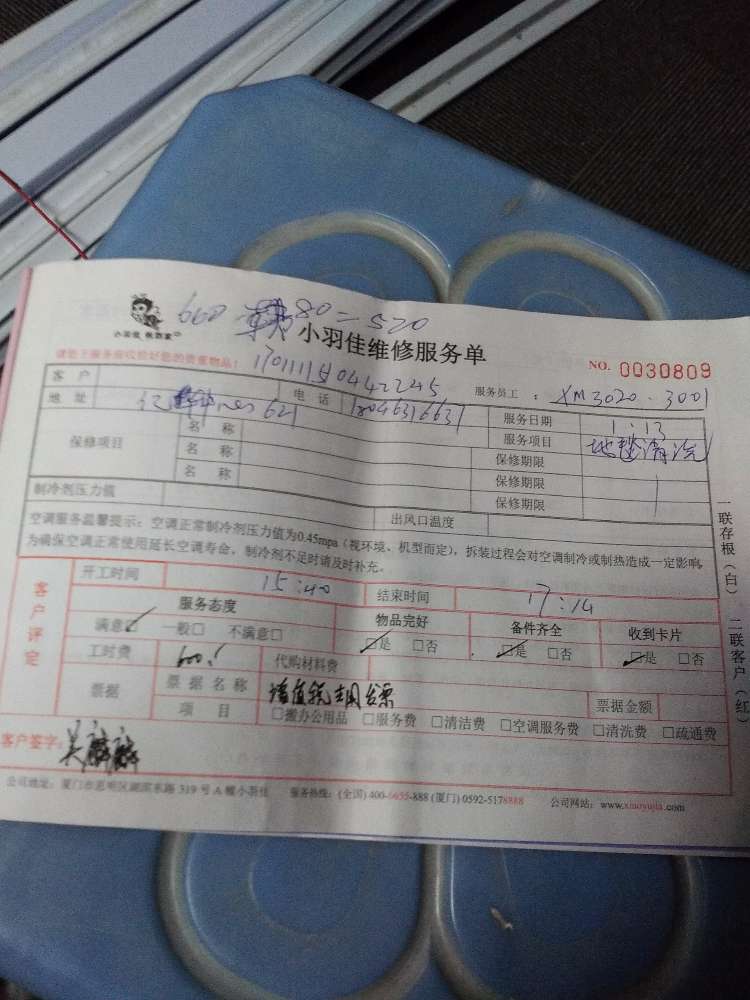 小羽佳 机器家
80=520
小羽佳维修服务单
请您上服务前收捡好您的贵重物品！
NO. 0030809
170111510442245
服务员工：XM3020.3001
客户
地址 621 电话 18046316631 服务日期 1.13
保修项目 名称 服务项目 地毯清洗
名称 保修期限
名称 保修期限
保修期限
制冷剂压力值 出风口温度
空调服务温馨提示：空调正常制冷剂压力值为0.45mpa（视环境、机型而定），拆装过程会对空调制冷或制热造成一定影响
为确保空调正常使用延长空调寿命，制冷剂不足时请及时补充。
客户评定
开工时间 15:40 结束时间 17:14
服务态度 物品完好 备件齐全 收到卡片
满意☑ 一般□ 不满意□ ☑是 □否 ☑是 □否 ☑是 □否
工时费 600 代购材料费
票据 票据名称 增值税专用发票 票据金额
项目 □搬办公用品 □服务费 □清洁费 □空调服务费 □清洗费 □疏通费
客户签字：吴麟麟
公司地址：厦门市思明区湖滨东路 319 号 A 幢小羽佳 服务热线：(全国) 400-6655-888 (厦门) 0592-5178888 公司网站：www.xmoyujia.com
一联存根（白） 二联客户（红）